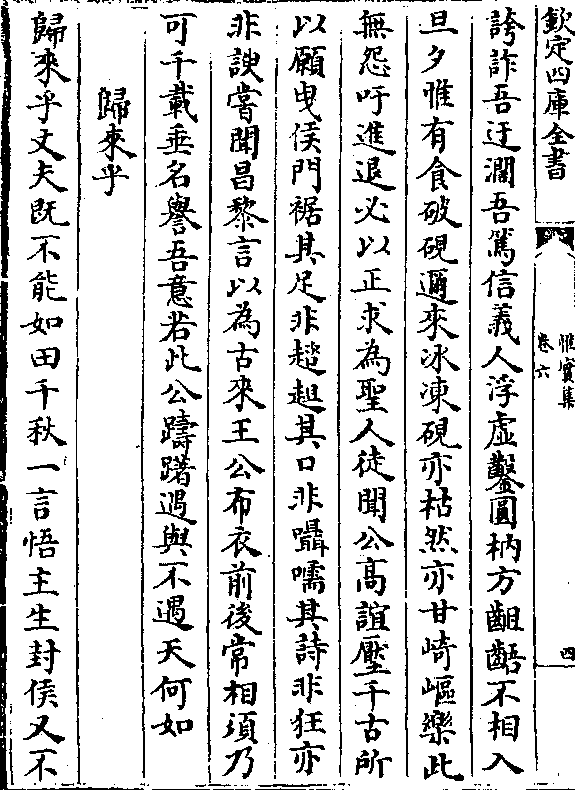 欽定四庫全書
惟實集
卷六
四
誇詐吾迂濶吾篤信義人浮虛鑿圓枘方齟齬不相入
旦夕惟有食破硯邇來冰凍硯亦枯然亦甘崎嶇樂此
無怨吁進退必以正求為聖人徒聞公高誼壓千古所
以願曳侯門裾其足非趦趄其口非囁嚅其詩非狂亦
非諛嘗聞昌黎言以為古來王公布衣前後常相須乃
可千載垂名譽吾意若此公躊躇遇與不遇天何如
歸來乎
歸來乎丈夫既不能如田千秋一言悟主生封侯又不